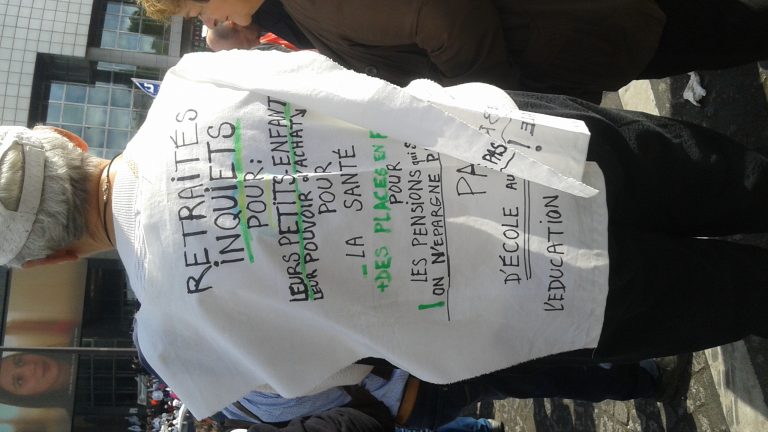 RETRAITÉS
INQUIETS
POUR:
LEURS PETITS-ENFANT
LEUR POUVOIR D'ACHAT
POUR
LA SANTÉ
+DES PLACES EN
POUR
LES PENSIONS qui
ON N'EPARGNE
PAS
D'ÉCOLE
L'EDUCATION